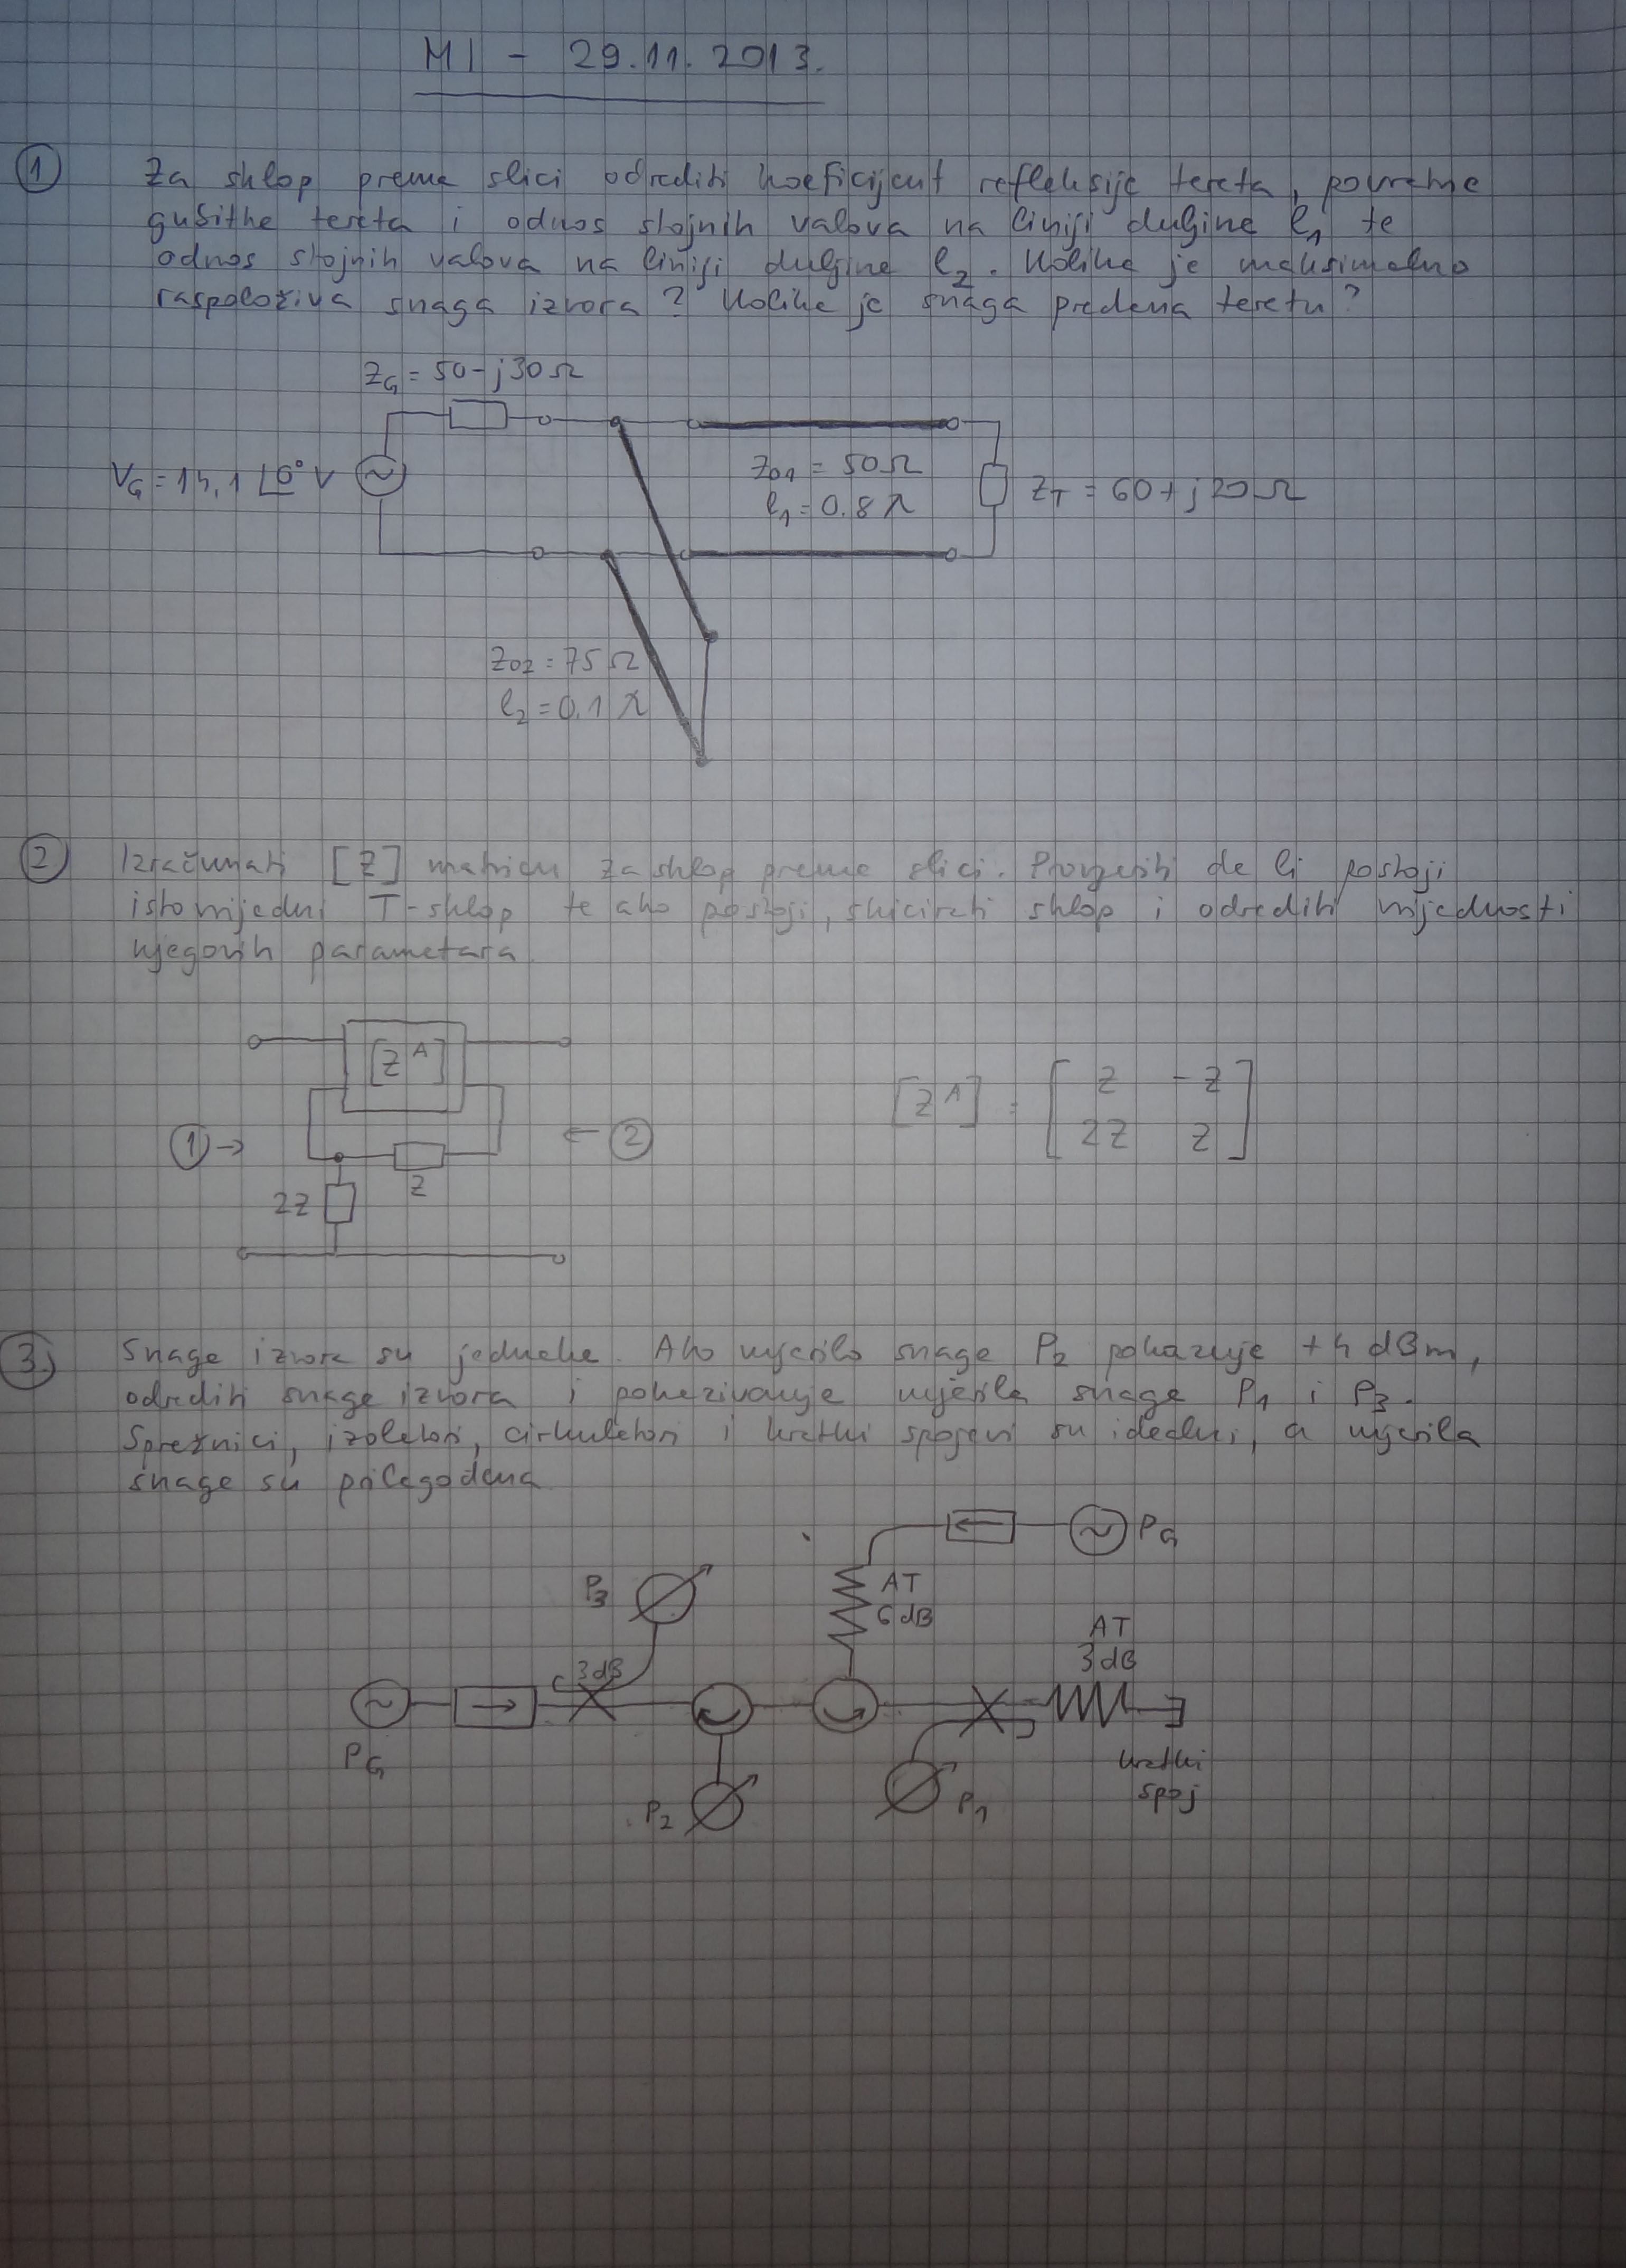 MI - 29.11.2013.
1
Za sklop prema slici odrediti koeficijent refleksije tereta, povratne
gušitke tereta i odnos stojnih valova na liniji duljine l1 te
odnos stojnih valova na liniji duljine l2. Kolika je maksimalno
raspoloživa snaga izvora? Kolika je snaga predena teretu?
ZG = 50 - j30 Ω
VG = 14,1 ∠0° V
Z01 = 50 Ω
l1 = 0.8 λ
ZT = 60 + j20 Ω
Z02 = 75 Ω
l2 = 0.1 λ
2
Izračunati [Z] matricu za sklop prema slici. Provjeriti da li postoji
istovrijedni T-sklop te ako postoji, skicirati sklop i odrediti vrijednosti
njegovih parametara
[Z^A]
[Z^A] = [ Z -Z
2Z Z ]
1 →
← 2
Z
2Z
3.
Snage izvora su jednake. Ako mjerilo snage P2 pokazuje +4 dBm,
odrediti snage izvora i pokazivanje mjerila snage P1 i P3.
Sprežnici, izolatori, cirkulatori i kratki spojevi su idealni, a mjerila
snage su prilagođena
PG
P3
AT
6 dB
AT
3 dB
3 dB
PG
P2
P1
kratki
spoj